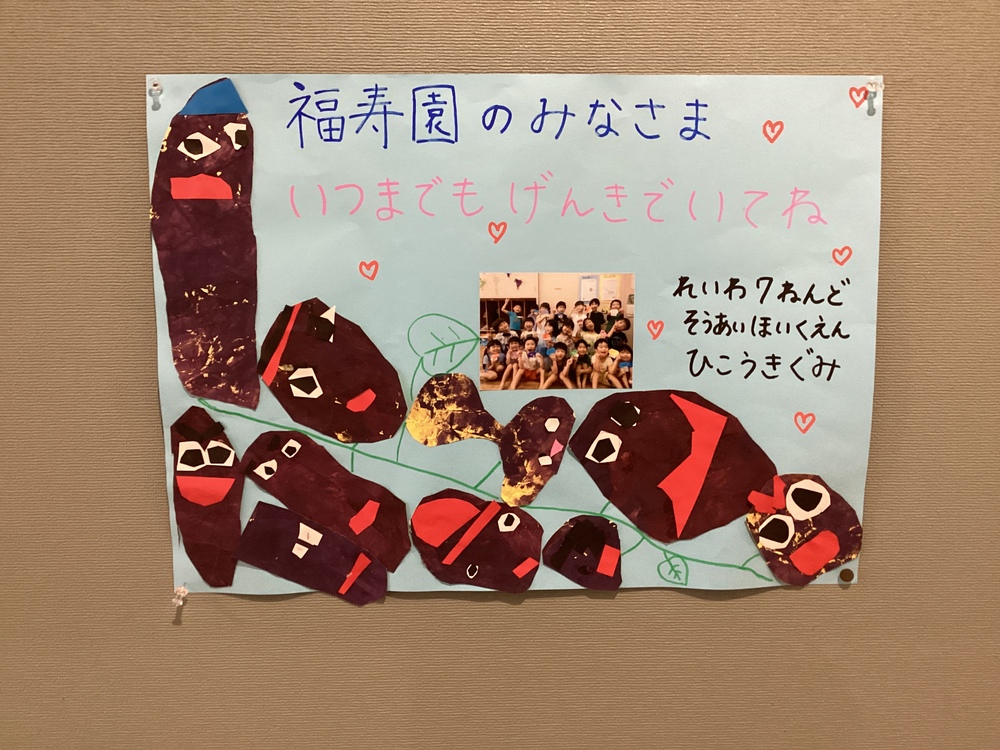 福寿園のみなさま
いつまでもげんきでいてね
れいわ7ねんど
そうあいほいくえん
ひこうきぐみ